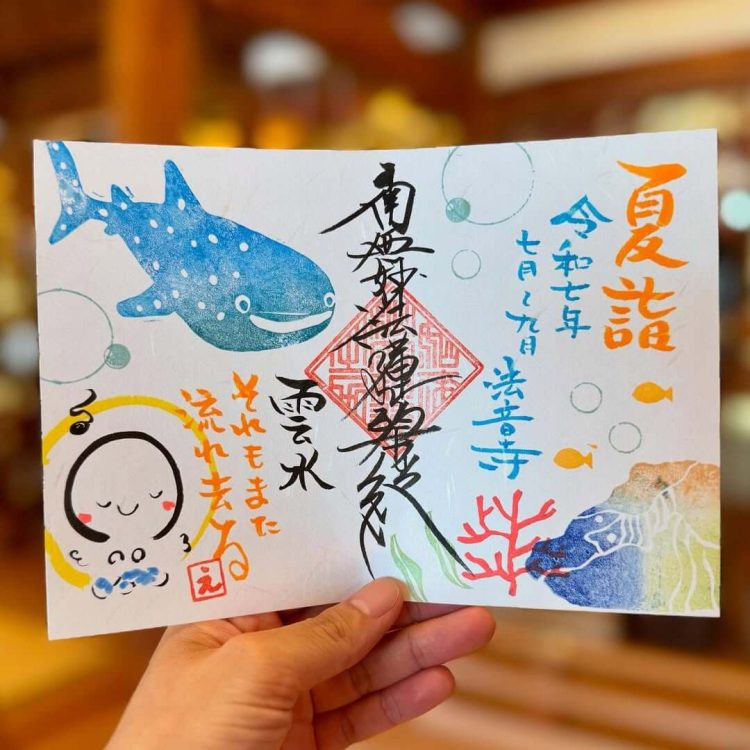 夏詣
令和七年
七月～九月
法音寺
南無妙法蓮華経
雲水
それもまた
流れ去る
え